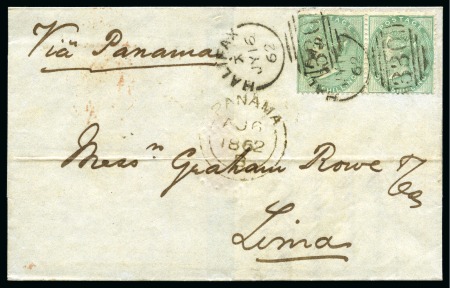 Via Panama
HALIFAX
K
JY 16
62
POSTAGE
330
330
PANAMA
AU 6
1862
Messrs Graham Rowe & Co
Lima